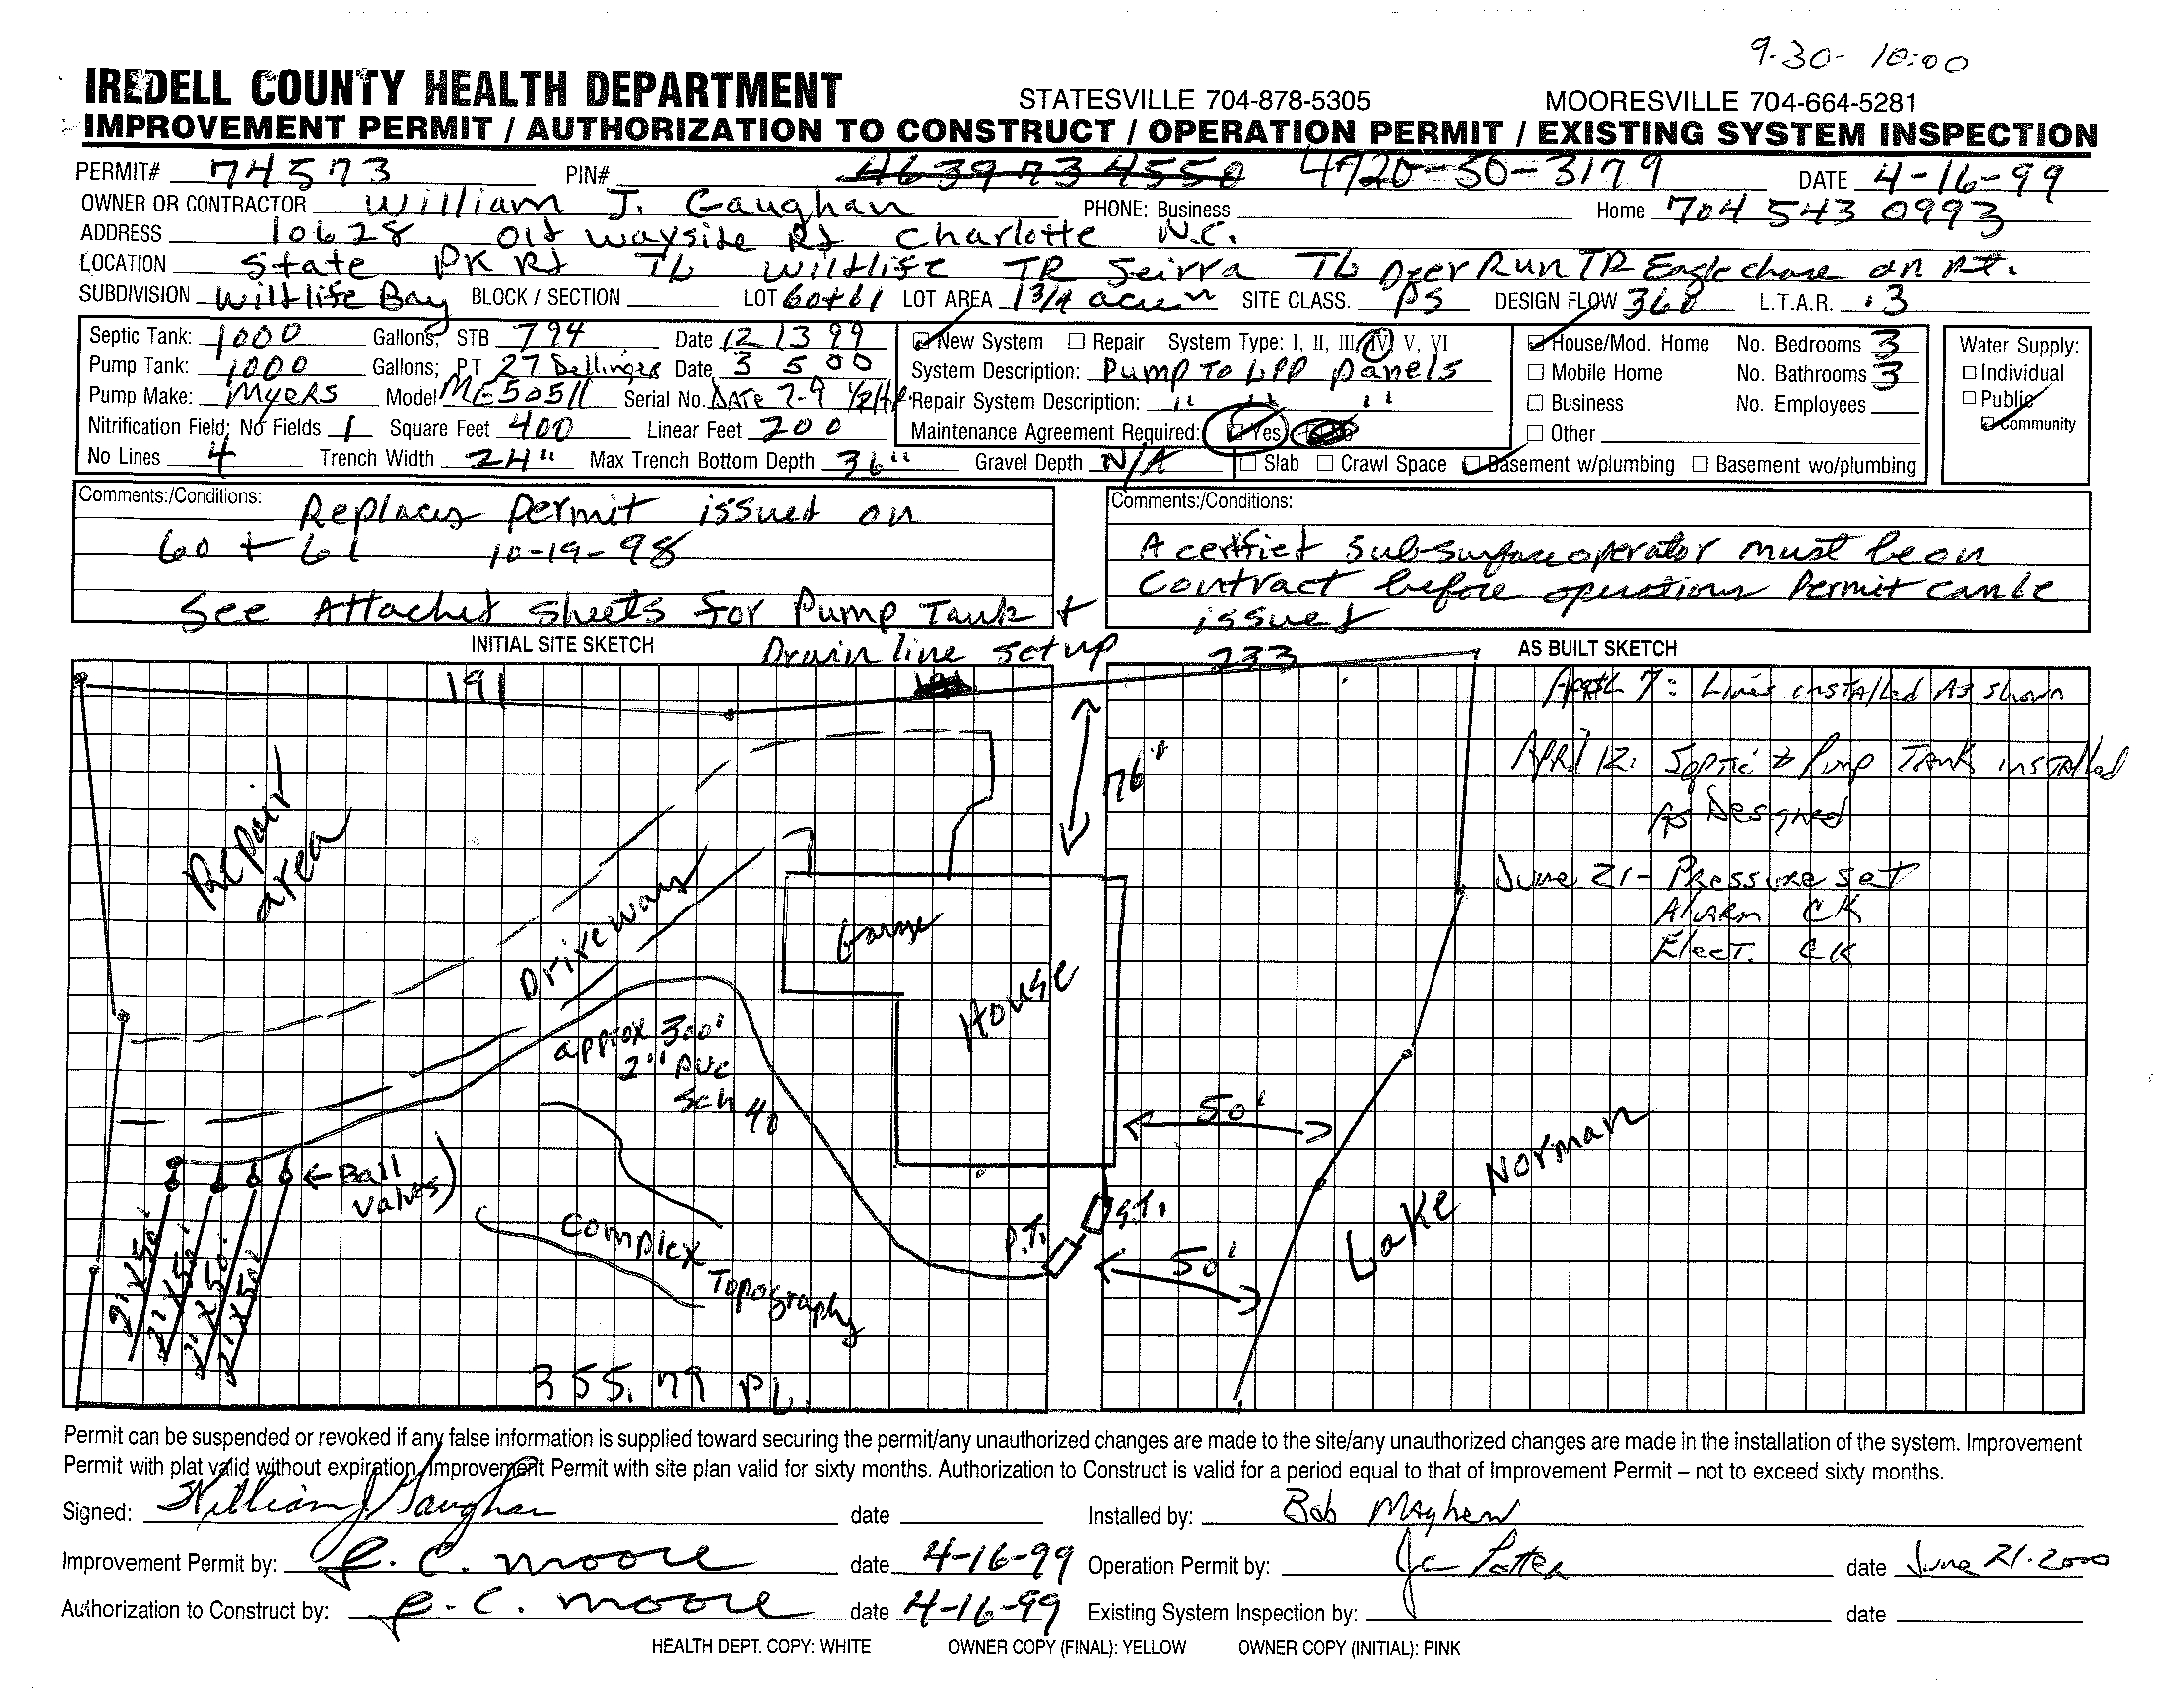 9-30- 10:00
IREDELL COUNTY HEALTH DEPARTMENT STATESVILLE 704-878-5305 MOORESVILLE 704-664-5281
IMPROVEMENT PERMIT / AUTHORIZATION TO CONSTRUCT / OPERATION PERMIT / EXISTING SYSTEM INSPECTION
PERMIT# 74573 PIN# 4639 73 4550 4720-50-3179 DATE 4-16-99
OWNER OR CONTRACTOR William J. Gaughan PHONE: Business Home 704 543 0993
ADDRESS 10628 Old Wayside Rd Charlotte N.C.
LOCATION State PK Rd TL Wildlife TR Seirra TL Deer Run TR Eagle chase on Rt.
SUBDIVISION Wildlife Bay BLOCK / SECTION LOT 60+61 LOT AREA 1 3/4 acres SITE CLASS. PS DESIGN FLOW 360 L.T.A.R. .3
Septic Tank: 1000 Gallons; STB 794 Date 12 13 99 New System Repair System Type: I, II, III, IV, V, VI House/Mod. Home No. Bedrooms 3 Water Supply:
Pump Tank: 1000 Gallons; PT 27 Dellinger Date 3 5 00 System Description: Pump To LPP panels Mobile Home No. Bathrooms 3 Individual
Pump Make: Myers Model ME50511 Serial No. DATE 7-9 1/2 HP Repair System Description: " " " Business No. Employees Public
Nitrification Field: No Fields 1 Square Feet 400 Linear Feet 200 Maintenance Agreement Required: Yes Other Community
No Lines 4 Trench Width 24" Max Trench Bottom Depth 36" Gravel Depth N/A Slab Crawl Space Basement w/plumbing Basement wo/plumbing
Comments:/Conditions: Replaces permit issued on
60 + 61 10-19-98
See Attached sheets for Pump Tank +
Drain line set up
Comments:/Conditions:
A certified sub-surface operator must be on
Contract before operations Permit can be
issued
INITIAL SITE SKETCH
191
233
76'
Repair
area
Driveway
Garage
House
approx 300'
2" PVC
Sch 40
50'
← Ball
valves
2' x 50'
2' x 50'
2' x 50'
2' x 50'
Complex
Topography
P.T.
S.T.
50'
Lake Norman
355.79 PL
AS BUILT SKETCH
April 7: Lines installed As shown
April 12: Septic & Pump Tank installed
As Designed
June 21- Pressure set
Alarm CK
Elect. CK
Permit can be suspended or revoked if any false information is supplied toward securing the permit/any unauthorized changes are made to the site/any unauthorized changes are made in the installation of the system. Improvement
Permit with plat valid without expiration/Improvement Permit with site plan valid for sixty months. Authorization to Construct is valid for a period equal to that of Improvement Permit – not to exceed sixty months.
Signed: William J Gaughan date Installed by: Bob Mayhew
Improvement Permit by: R. C. Moore date 4-16-99 Operation Permit by: date June 21-2000
Authorization to Construct by: R. C. Moore date 4-16-99 Existing System Inspection by: date
HEALTH DEPT. COPY: WHITE OWNER COPY (FINAL): YELLOW OWNER COPY (INITIAL): PINK